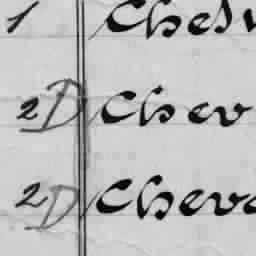 1 Ches
2D Chev
2D Cheva